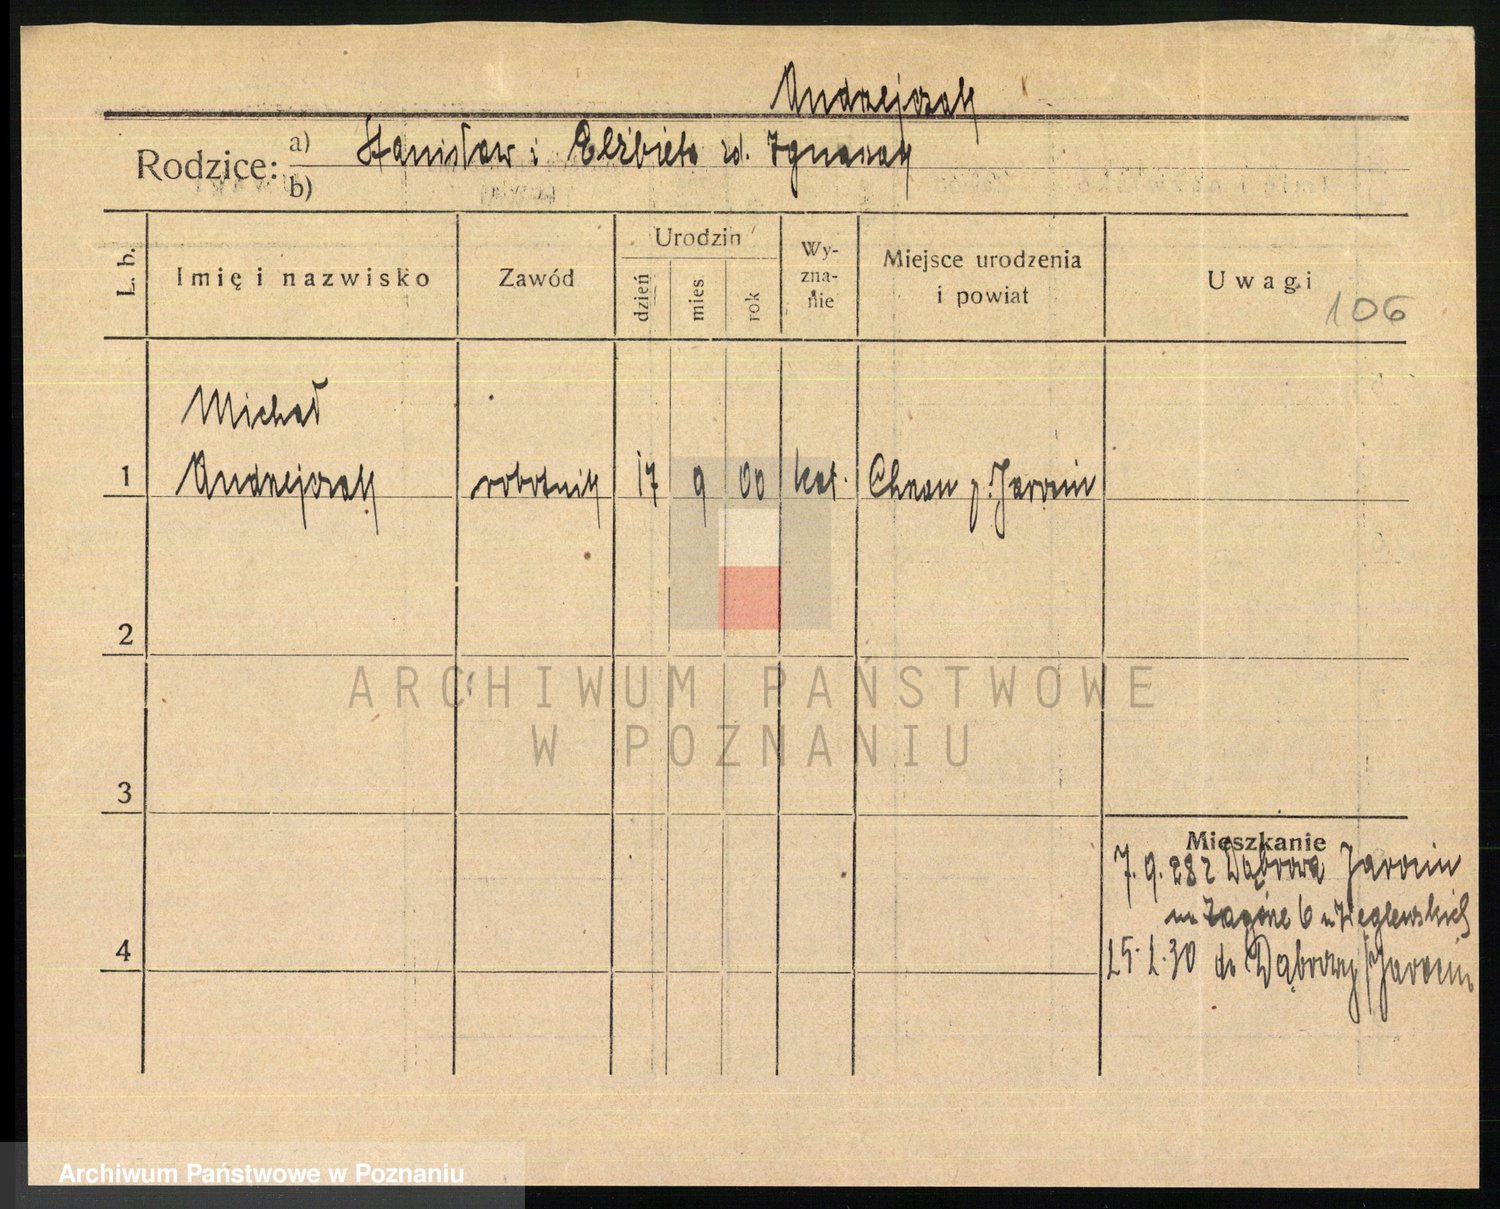 Andrzejczak
Rodzice: a) Stanisław i Elżbieta zd. Ignasiak
b)
L. b.
Imię i nazwisko
Zawód
Urodzin
dzień
mies
rok
Wy-
zna-
nie
Miejsce urodzenia
i powiat
Uwagi
106
Michał
1 Andrzejczak robotnik 17 9 00 kat. Chrzan p. Jarocin
2
ARCHIWUM PAŃSTWOWE
W POZNANIU
3
Mieszkanie
7. 9. 28 z Dąbrowa Jarocin
na Zagórze 6
4
15. 1. 30 do Dąbrowy Jarocin
Archiwum Państwowe w Poznaniu